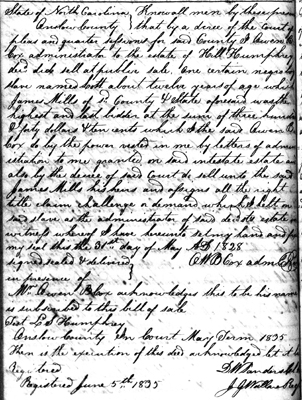 State of North Carolina } Know all men by these pre
Onslow County } that by a decree of the Court of
pleas and quarter sessions for said County I Owen B
Cox administrator to the estate of Hill Humphrey
decd did sell at public sale, One certain negro
slave named bob about twelve years of age wh
James Mills of sd County & State aforesaid was the
highest and last bidder at the sum of three hundre
& fifty dollars & ten cents which I the said Owen B
Cox do by the power vested in me by letters of admin
istration to me granted on said intestate estate an
also by the decree of said Court do sell unto the said
James Mills his heirs and assigns all the right
title claim challenge or demand which I hath in
said slave as the administrator of said decd estate
witness whereof I have hereunto set my hand and
my seal this the 31st day of May AD 1828
signed sealed & delivered } O W B Cox adm
in presence of
Mr. Owen B Cox acknowledges this to be his name
is subscribed to this bill of sale
Test L S Humphrey
Onslow County In Court May Term 1835
Then is the execution of this deed acknowledged let it be
Registered
Registered June 5th 1835 J G Wallace Reg